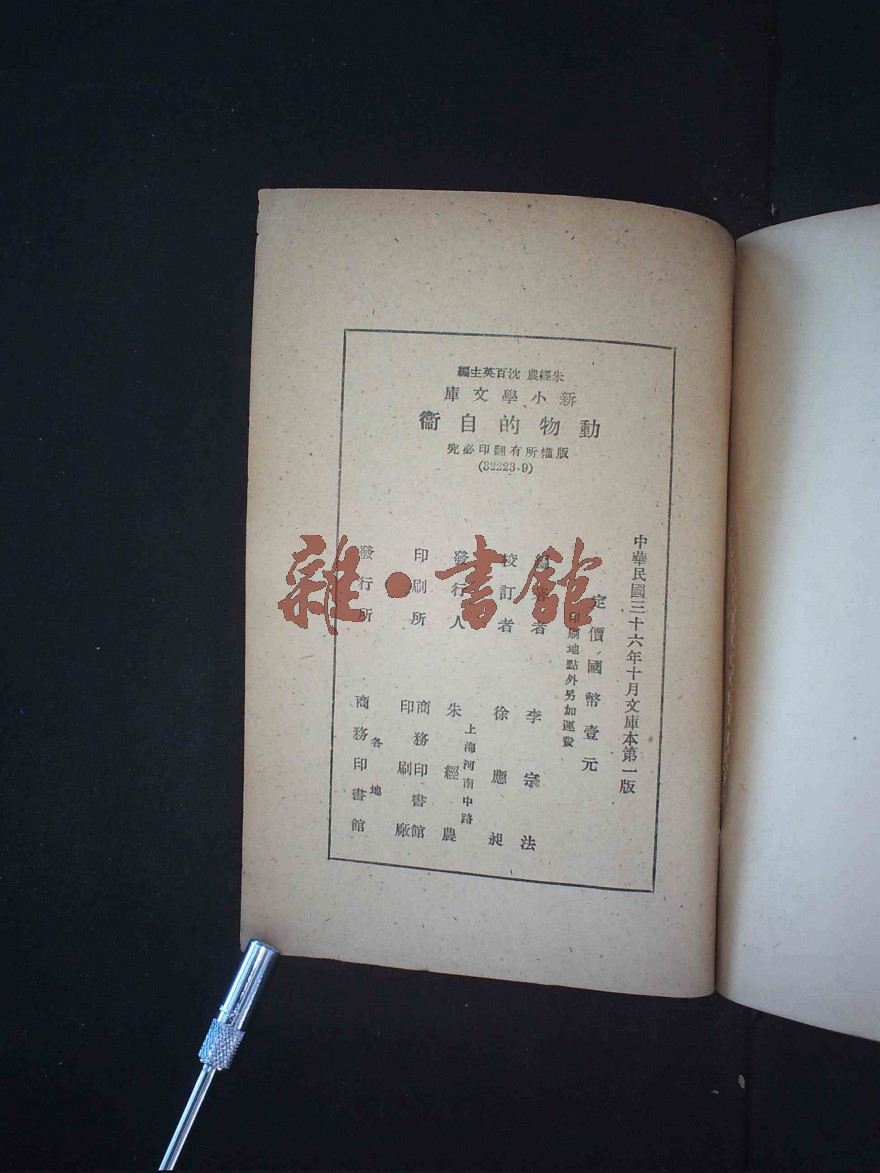 朱經農 沈百英主編
新小學文庫
動物的自衞
版權所有翻印必究
(82223·9)
中華民國三十六年十月文庫本第一版
定價國幣壹元
印刷地點外另加運費
編著者 李宗法
校訂者 徐應昶
發行人 朱經農
上海河南中路
印刷所 商務印書館
印刷廠
發行所 商務印書館
各地
雜·書館